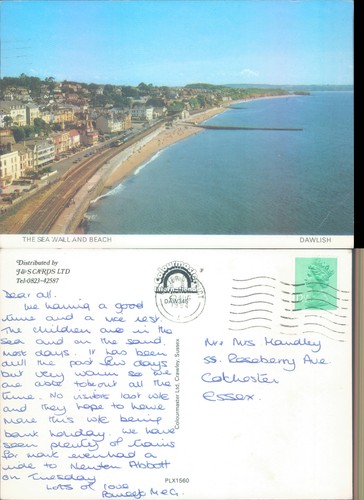 THE SEA WALL AND BEACH
DAWLISH
Distributed by
J & S CARDS LTD
Tel: 0823-42587
Dear all.
We having a good
time and a nice rest.
The children are in the
sea and on the sand
most days. It has been
dull the past few days
but very warm so we
are able to be out all the
time. No visitors last w/e
and they hope to have
more this w/e being
bank holiday. We have
seen plenty of trains
for mark even had a
ride to Newton Abbott
on Tuesday
Lots of love
Colourmaster Ltd. Crawley, Sussex
PLX1560
Mr & Mrs Handley
55. Roseberry Ave.
Colchester
Essex.